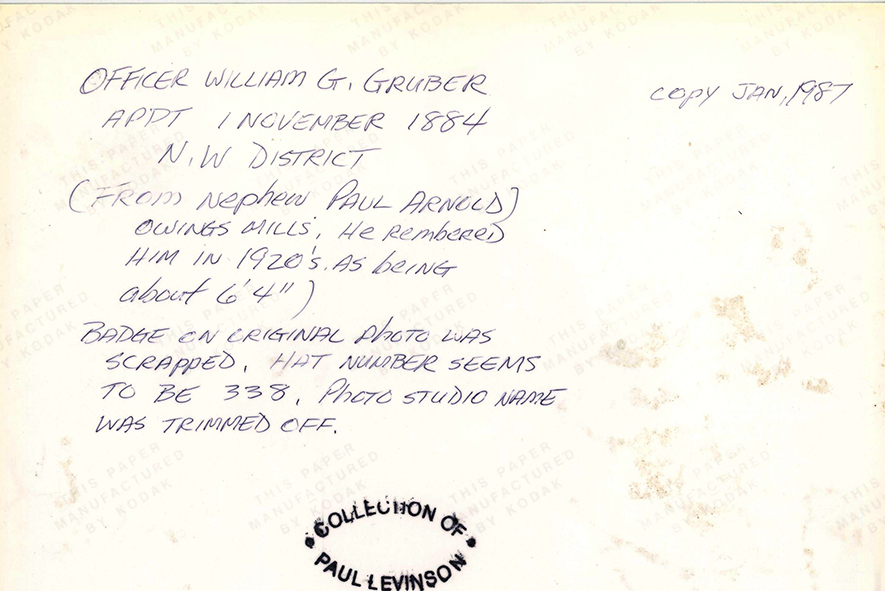 OFFICER WILLIAM G. GRUBER
COPY JAN, 1987
APPT 1 NOVEMBER 1884
N.W DISTRICT
(FROM Nephew PAUL ARNOLD)
OWINGS MILLS, He Rembered
HIM IN 1920's. AS being
about 6'4")
BADGE ON ORIGINAL photo WAS
SCRAPPED. HAT NUMBER SEEMS
TO BE 338. Photo STUDIO NAME
WAS TRIMMED OFF.
COLLECTION OF
PAUL LEVINSON
THIS PAPER
MANUFACTURED
BY KODAK